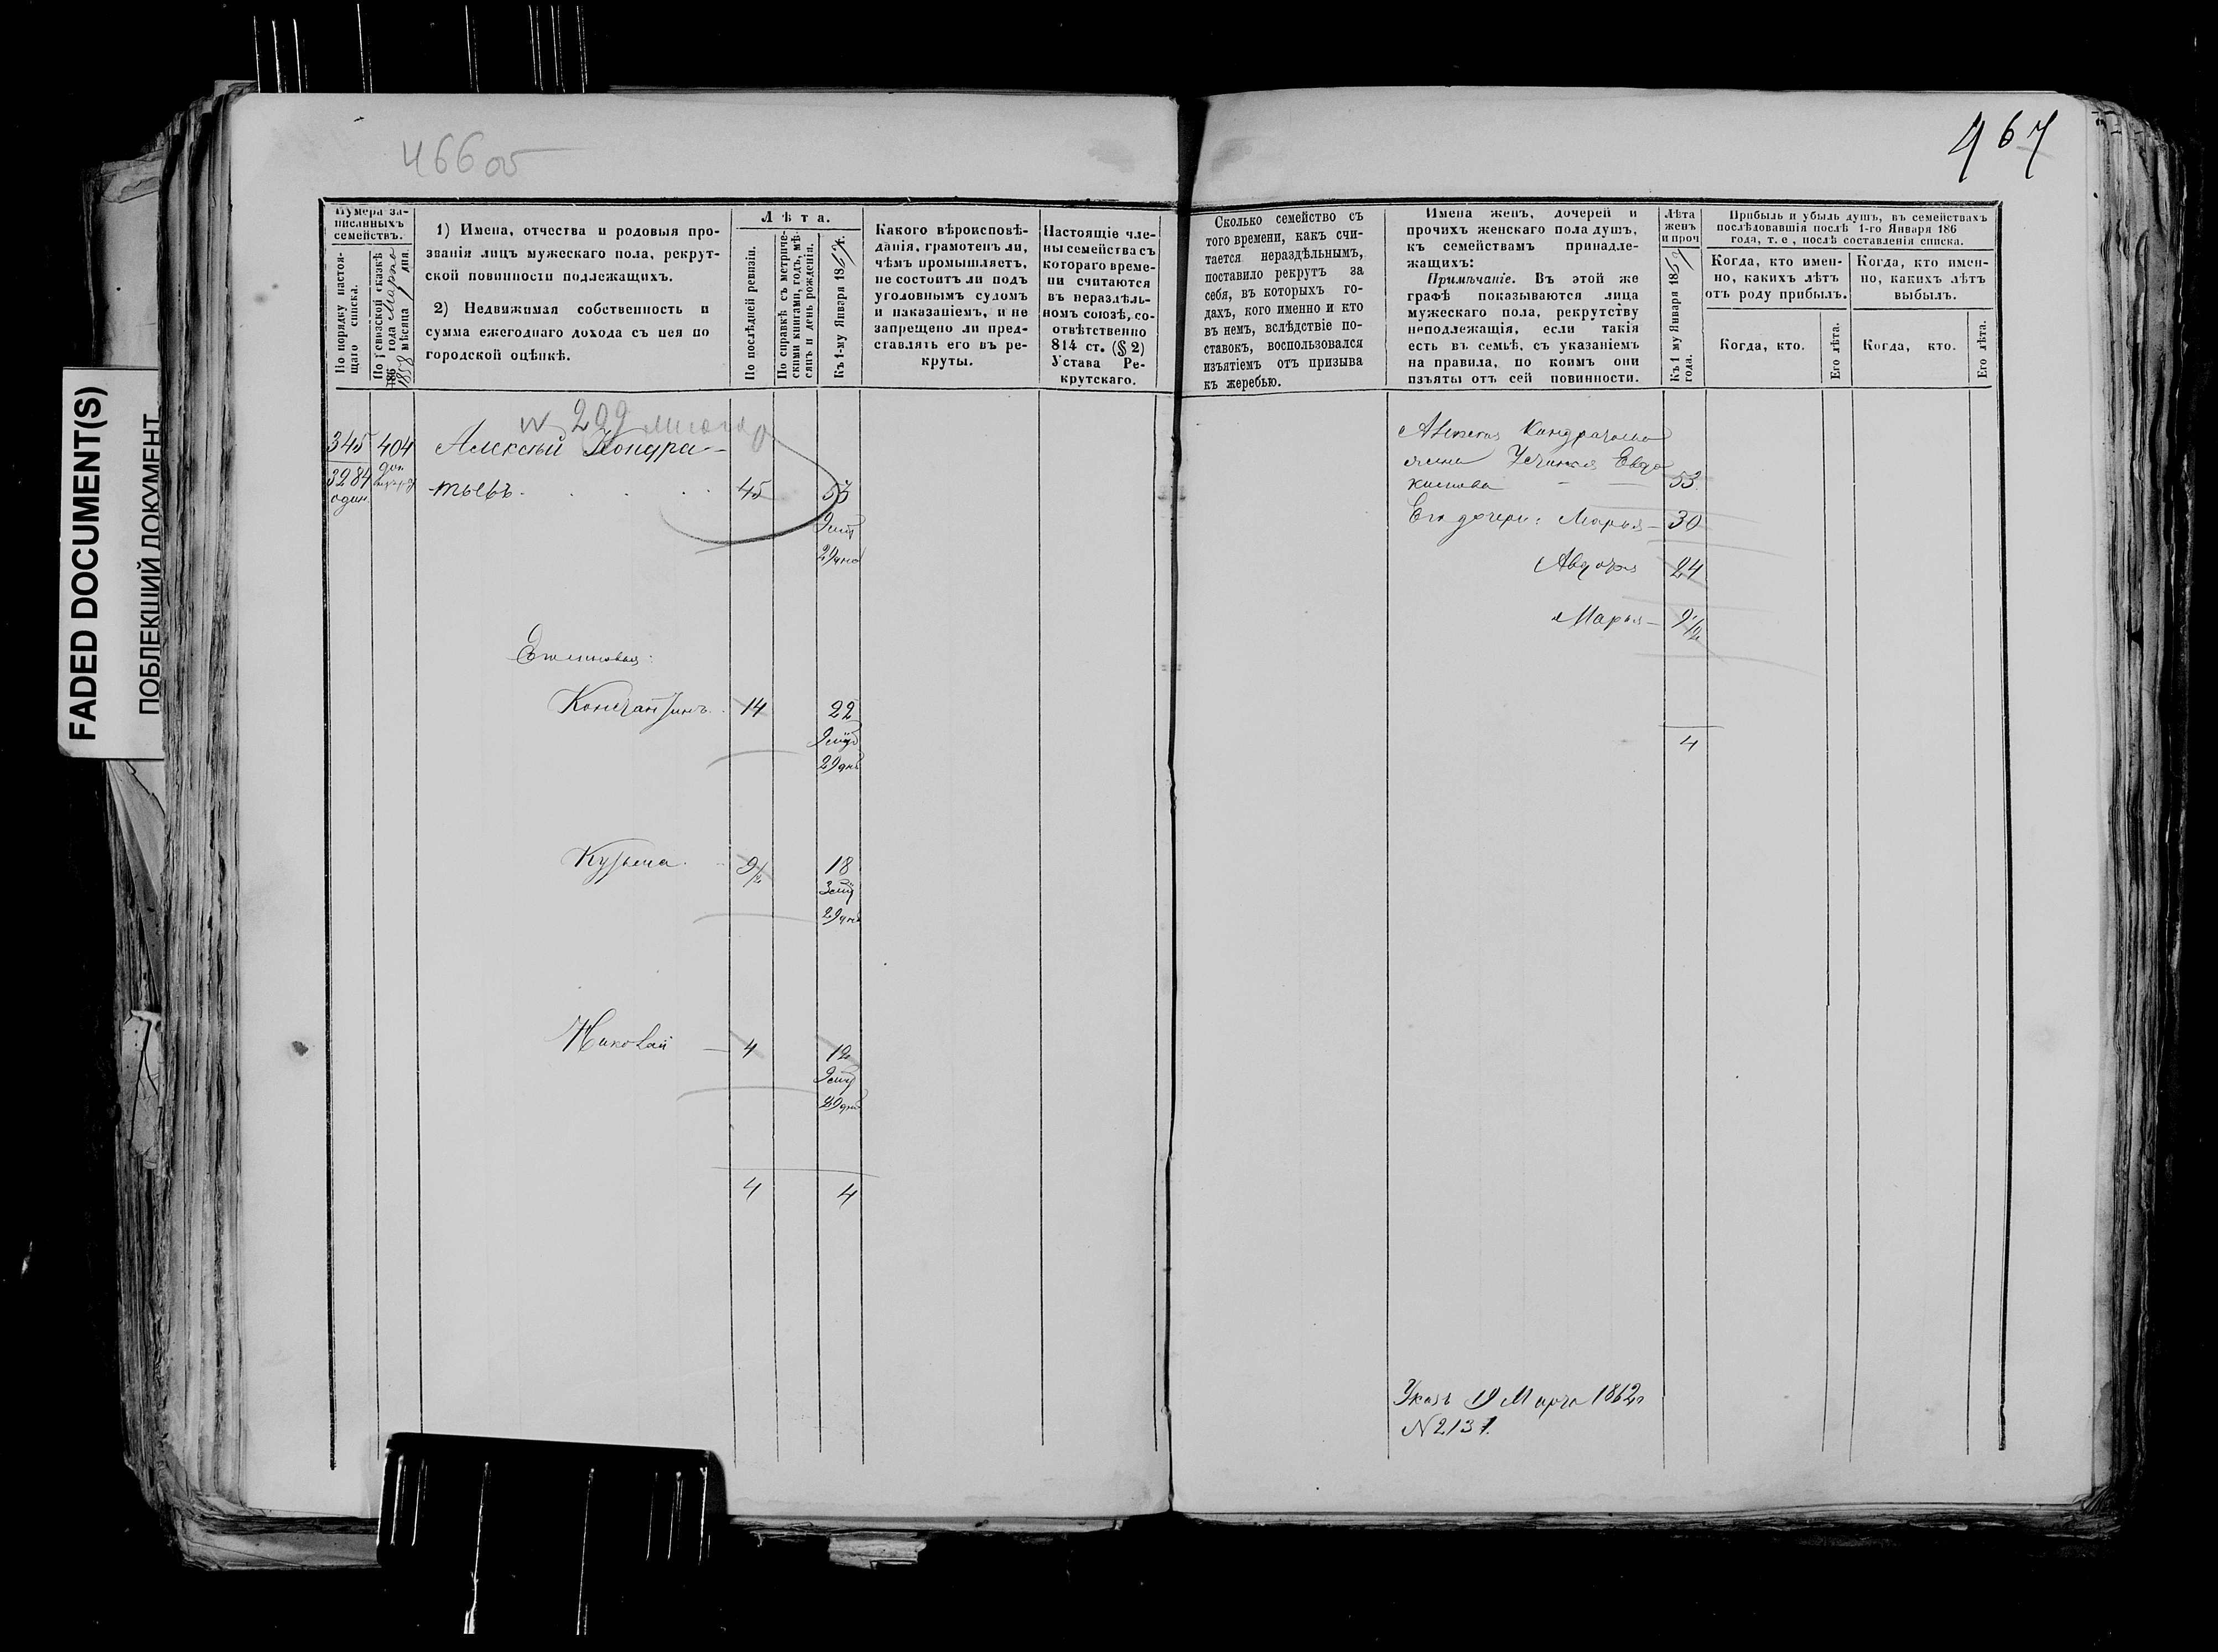 FADED DOCUMENT(S)
ПОБЛЕКШИЙ ДОКУМЕНТ
466 об
467
Нумера за-
писанныхъ
семействъ.
По порядку настоя-
щаго списка.
По ревизской сказкѣ
186 1858 года Марта
мѣсяца 1 дня.
1) Имена, отчества и родовыя про-
званія лицъ мужескаго пола, рекрут-
ской повинности подлежащихъ.
2) Недвижимая собственность и
сумма ежегоднаго дохода съ нея по
городской оцѣнкѣ.
Лѣта.
По послѣдней ревизіи.
По справкѣ съ метриче-
скими книгами, годъ, мѣ-
сяцъ и день рожденія.
Къ 1-му Января 1867 г.
Какого вѣроисповѣ-
данія, грамотенъ ли,
чѣмъ промышляетъ,
не состоитъ ли подъ
уголовнымъ судомъ
и наказаніемъ, и не
запрещено ли пред-
ставлять его въ ре-
круты.
Настоящіе чле-
ны семейства съ
котораго време-
ни считаются
въ нераздѣль-
номъ союзѣ, со-
отвѣтственно
814 ст. (§ 2)
Устава Ре-
крутскаго.
Сколько семейство съ
того времени, какъ счи-
тается нераздѣльнымъ,
поставило рекрутъ за
себя, въ которыхъ го-
дахъ, кого именно и кто
въ немъ, вслѣдствіе по-
ставокъ, воспользовался
изъятіемъ отъ призыва
къ жеребью.
Имена женъ, дочерей и
прочихъ женскаго пола душъ,
къ семействамъ принадле-
жащихъ:
Примѣчаніе. Въ этой же
графѣ показываются лица
мужескаго пола, рекрутству
неподлежащія, если такія
есть въ семьѣ, съ указаніемъ
на правила, по коимъ они
изъяты отъ сей повинности.
Лѣта
женъ
и проч
Къ 1 му Января 1867
года.
Прибыль и убыль душъ, въ семействахъ
послѣдовавшія послѣ 1-го Января 186
года, т. е, послѣ составленія списка.
Когда, кто имен-
но, какихъ лѣтъ
отъ роду прибылъ.
Когда, кто имен-
но, какихъ лѣтъ
выбылъ.
Когда, кто.
Его лѣта.
Когда, кто.
Его лѣта.
N 299
345 404 Алексѣй Кондра-
3284 доп
один.
-тьевъ 45 53
9 мѣс
29 дней
Константинъ 14 22
29 дн
Кузьма 9/12 18
29 дн
Николай 4 12
29 дн
4 4
Алексея Кандратьева
жена Устинья Евдо
кимова 53
Его дочери: Марья 30
Авдотья 24
Марья 9/12
4
Указъ 19 Марта 1862 г
N 2137.